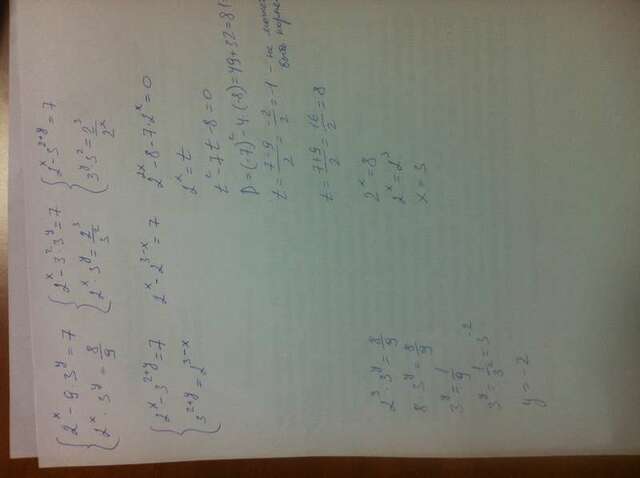 { 2^x - 9·3^y = 7
2^x · 3^y = 8/9
{ 2^x - 3^2·3^y = 7
2^x · 3^y = 2^3/3^2
{ 2^x - 3^(2+y) = 7
3^y·3^2 = 2^3/2^x
{ 2^x - 3^(2+y) = 7
3^(2+y) = 2^(3-x)
2^x - 2^(3-x) = 7
2^(2x) - 8 - 7·2^x = 0
2^x = t
t^2 - 7t - 8 = 0
D = (-7)^2 - 4·(-8) = 49 + 32 = 81
t = (7-9)/2 = -2/2 = -1 - не може
быть корне
t = (7+9)/2 = 16/2 = 8
2^x = 8
2^x = 2^3
x = 3
2^3 · 3^y = 8/9
8 · 3^y = 8/9
3^y = 1/9
3^y = 1/3^2 = 3^-2
y = -2